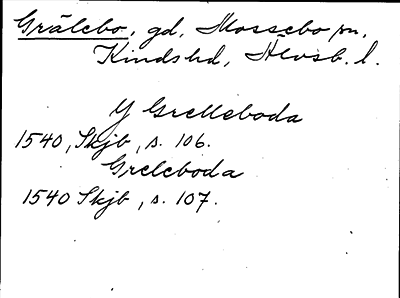 Grälebo, gd, Mossebo sn,
Kinds hd, Älvsb. l.
Y Grelleboda
1540, Skjb, s. 106.
Greleboda
1540 Skjb, s. 107.